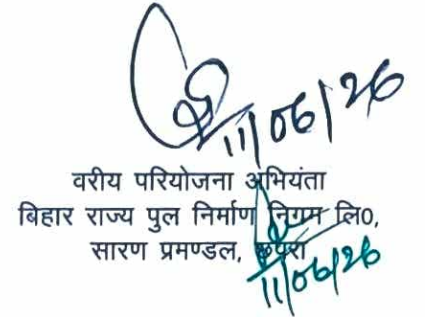 11/06/26
वरीय परियोजना अभियंता
बिहार राज्य पुल निर्माण निगम लि0,
सारण प्रमण्डल, छपरा
11/06/26